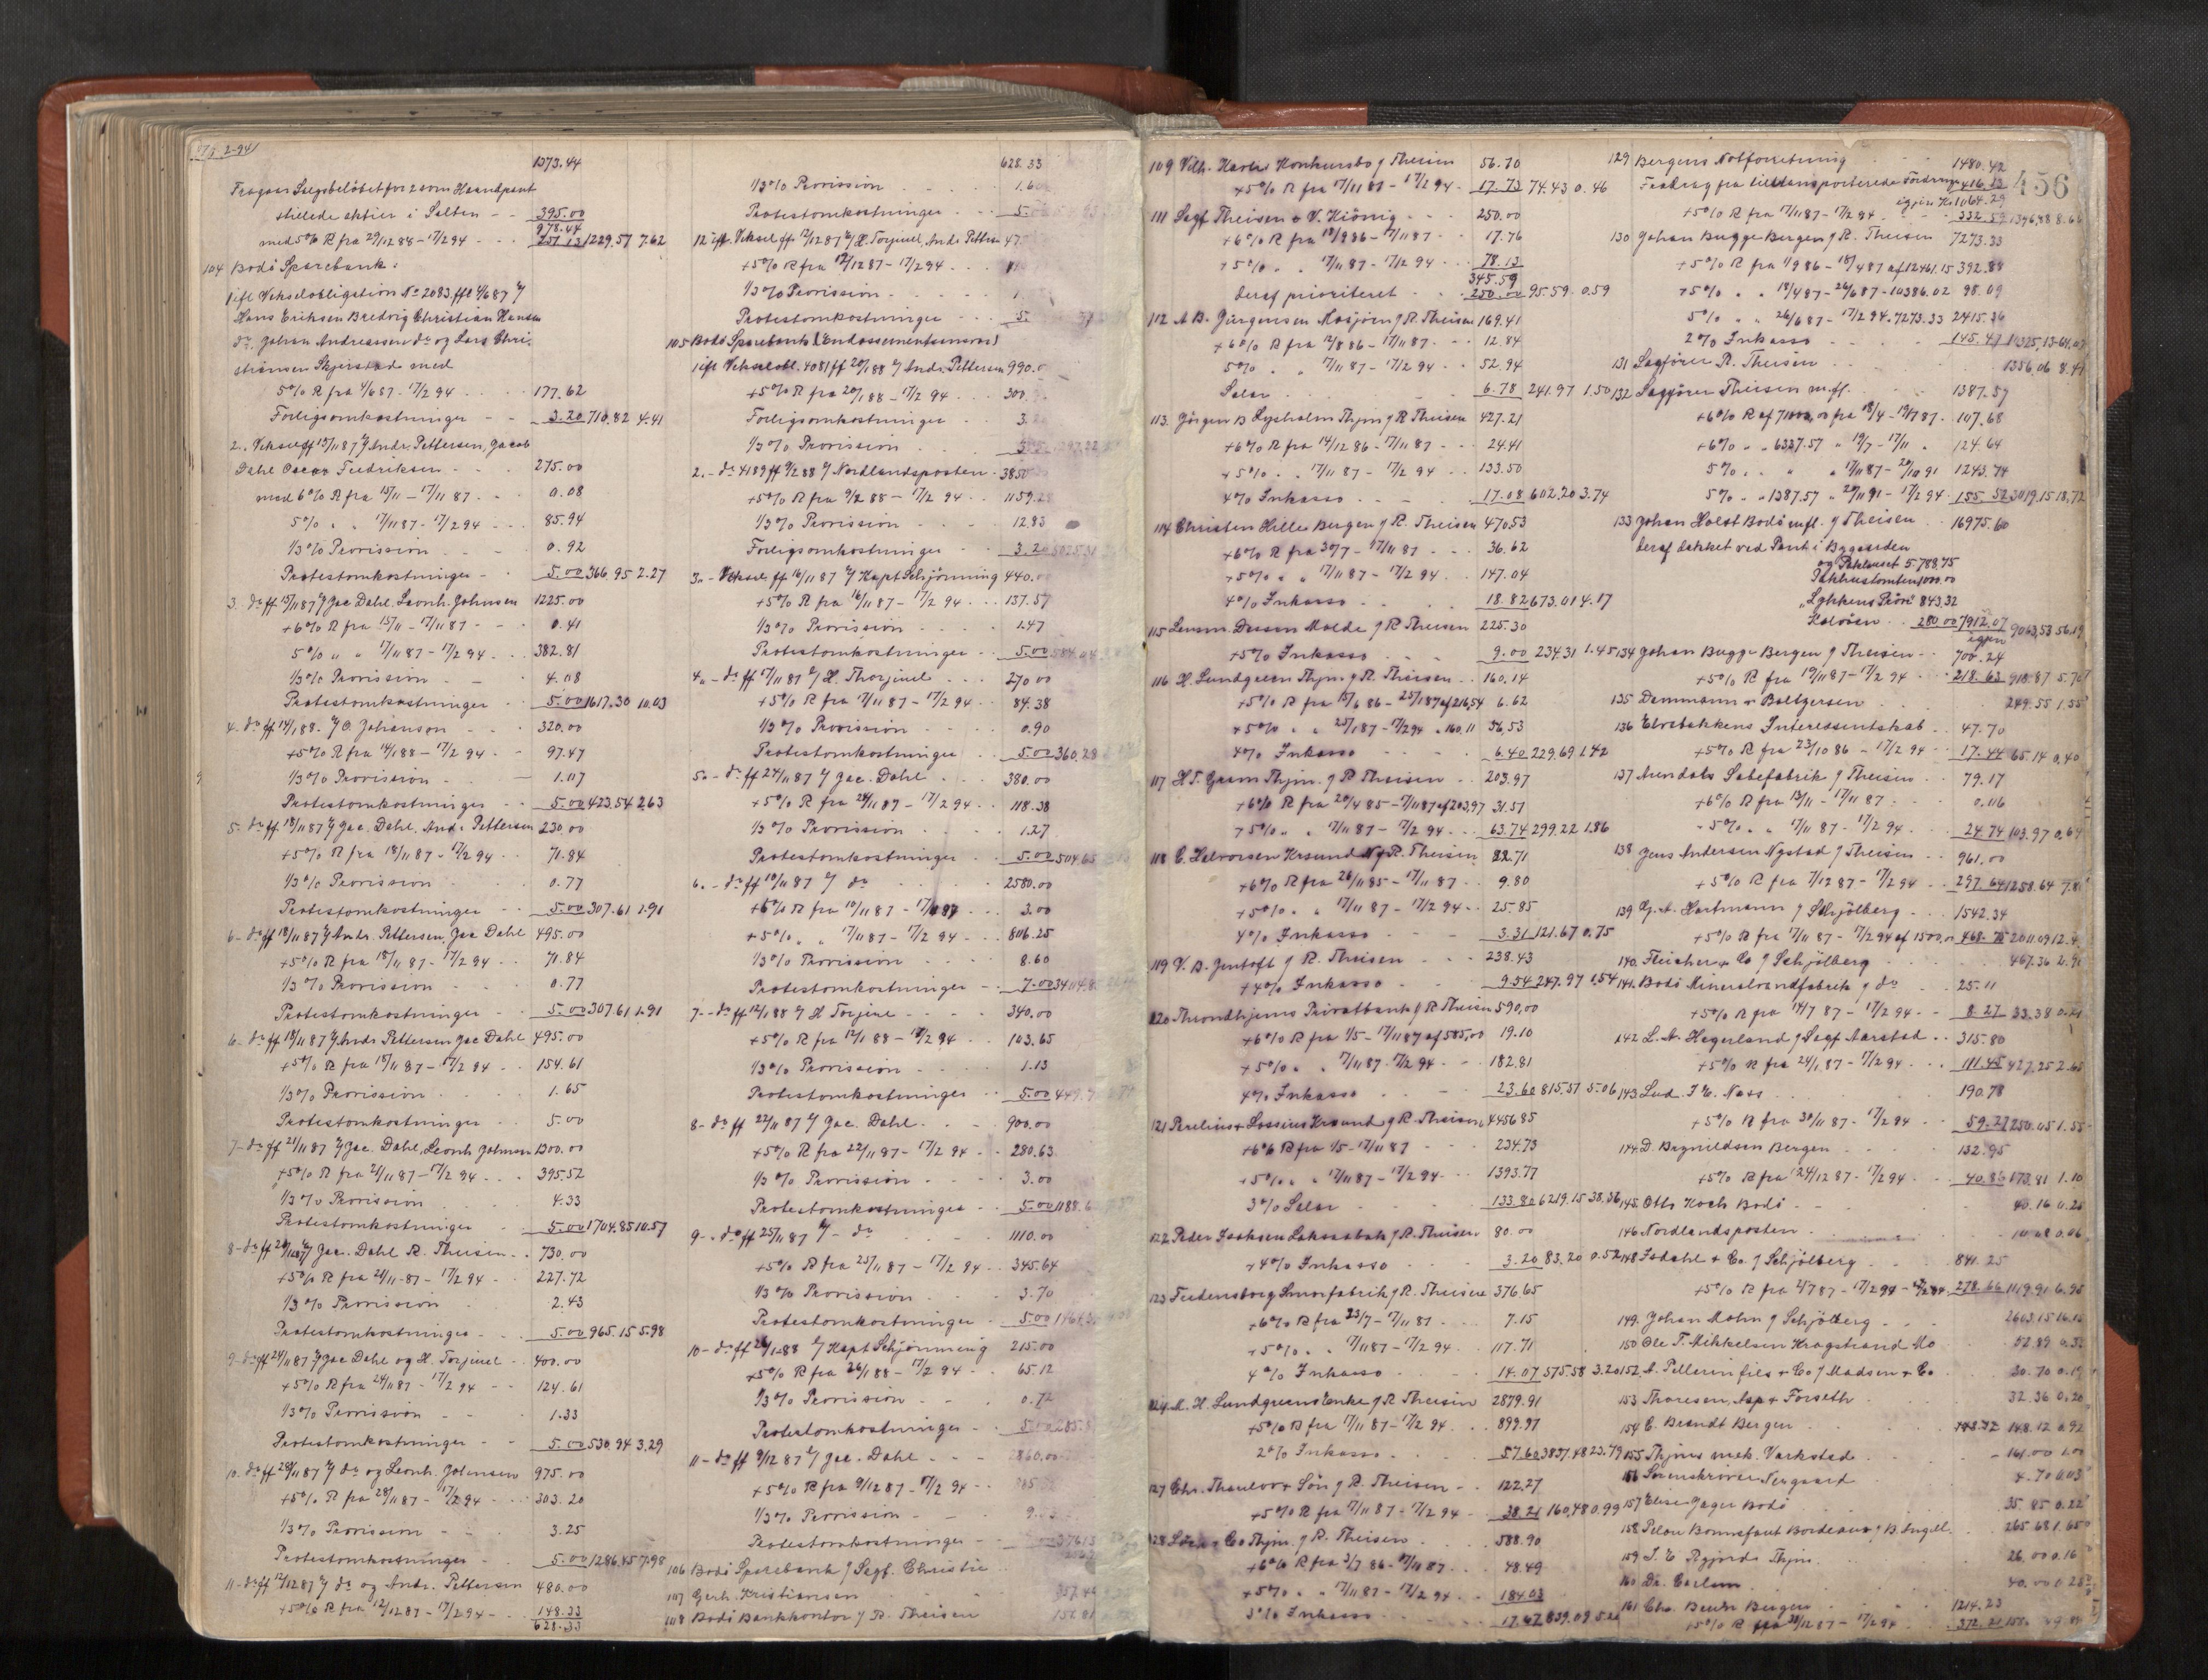 17/2-94
1373.44
Fragaar Salgsbeløbet for 2 som Haandpant
stillede aktier i Salten - - 395.00
978.44
med 5% R fra 29/12 88 - 17/2 94 - - - 251.13 1229.57 7.62
104 Bodö Sparebank:
1 ifl Vekselobligation No 2083, ffl 4/6 87 %
Hans Eriksen Bredvig Christian Hansen
do. Johan Andreassen do og Lars Chri-
stiansen Skjerstad med
5% R fra 4/6 87 - 17/2 94 - - 177.62
Forligsomkostninger - - 3.20 710.82 4.41
2. Veksel ff 15/11 87 % Andr. Pettersen, Jacob
Dahl Oscar Fredriksen - - 275.00
med 6% R fra 15/11 - 17/11 87 - - 0.08
5% " " 17/11 87 - 17/2 94 - - - 85.94
1/3% Provission - - - 0.92
Protestomkostninger - - 5.00 366.95 2.27
3. do ff 15/11 87 % Jac Dahl. Leonh. Johnsen 1225.00
+6% R fra 15/11 - 17/11 87 - - - 0.41
5% " " 17/11 87 - 17/2 94 - - - 382.81
1/3% Provission - - 4.08
Protestomkostninger - - 5.00 1617.30 10.03
4. do ff 14/1 88. % O. Johanson - - 320.00
+5% R fra 14/1 88 - 17/2 94 - - 97.47
1/3% Provission - - - 1.07
Protestomkostninger - - 5.00 423.54 2.63
5. do ff 18/11 87 % Jac. Dahl, Andr. Pettersen 230.00
+5% R fra 18/11 87 - 17/2 94 - - 71.84
1/3% Provission - - 0.77
Protestomkostninger - - 5.00 307.61 1.91
6 - do ff 18/11 87 % Andr. Pettersen, Jac Dahl 495.00
+5% R fra 18/11 87 - 17/2 94 - - 71.84
1/3% Provission - - - 0.77
Protestomkostninger - - 5.00 307.61 1.91
6 - do ff 18/11 87 % Andr Pettersen Jac Dahl 495.00
+5% R fra 18/11 87 - 17/2 94 - - 154.61
1/3% Provission - - - 1.65
Protestomkostninger - - 5.00
7 - do ff 21/11 87 % Jac. Dahl, Leonh Johnsen 1300.00
+5% R fra 21/11 87 - 17/2 94 - - - 395.52
1/3% Provission - - - 4.33
Protestomkostninger - - 5.00 1704.85 10.57
8 - do ff 21/11 87 % Jac. Dahl R. Theisen - - 730.00
+5% R fra 21/11 - 87 - 17/2 94 - - 227.72
1/3% Provission - - 2.43
Protestomkostninger - - 5.00 965.15 5.98
9 - do ff 24/11 87 % Jac Dahl og H. Torjusel - - 400.00
+5% R fra 24/11 87 - 17/2 94 - - 124.61
1/3% Provission - - 1.33
Protestomkostninger - - 5.00 530.94 3.29
10 - do ff 28/11 87 % do og Leonh. Johnsen 975.00
+5% R fra 28/11 87 - 17/2 94 - - - 303.20
1/3% Provission - - - 3.25
Protestomkostninger - - 5.00 1286.45 7.98
11 - do ff 12/12 87 % do og Andr. Pettersen 480.00
+5% R fra 12/12 87 - 17/2 94 - - 148.33
628.33
628.33
1/3% Provission - - - 1.6
Protestomkostninger - - 5.
12 ifl. Veksel ff 12/12 87 % H. Torjusel, Andr. Pettersen 47
+5% R fra 12/12 87 - 17/2 94 - - -
1/3% Provission - - - 1.
Protestomkostninger - - 5.
105 Bodö Sparebank (Endossementsansvar)
1 ifl Vekselobl. 4081 ff 20/1 88 % Andr. Pettersen 990.0
+5% R fra 20/1 88 - 17/2 94 - - 300.
Forligsomkostninger - - 3.2
1/3% Provission - - -
2. - do 4189 ff 9/2 88 % Nordlandsposten - 3850
+5% R fra 9/2 88 - 17/2 94 - - 1159.28
1/3% Provission - - - 12.83
Forligsomkostninger - - 3.20 5025.31
3. - Veksel ff 16/11 87 % Kapt Schjönning 440.0
+5% R fra 16/11 87 - 17/2 94 - - - 137.57
1/3% Provission - - - 1.47
Protestomkostninger - - 5.00 584.04
4. - do ff 17/11 87 % H. Thorjusel - - - 270.00
+5% R fra 17/11 87 - 17/2 94 - - 84.38
1/3% Provission - - - 0.90
Protestomkostninger - - 5.00 360.28
5. - do ff 24/11 87 % Jac. Dahl - - - 380.00
+5% R fra 24/11 87 - 17/2 94 - - - 118.38
1/3% Provission - - - 1.27
Protestomkostninger - - 5.00 504.65
6. - do ff 10/11 87 % do - - - 2580.00
+6% R fra 10/11 87 - 17/11 87 - - - 3.00
+5% " " 17/11 87 - 17/2 94 - - - 806.25
1/3% Provission - - - 8.60
Protestomkostninger - - 7.00 3404.8
7 - do ff 12/1 88 % H Torjusel - - - 340.00
+5% R fra 12/1 88 - 17/2 94 - - - 103.65
1/3% Provission - - - 1.13
Protestomkostninger - - 5.00 449.7
8 - do ff 22/11 87 % Jac. Dahl - - - 900.00
+5% R fra 22/11 87 - 17/2 94 - - 280.63
1/3% Provission - - - 3.00
Protestomkostninger - - 5.00 1188.6
9 - do ff 25/11 87 % - do - - - 1110.00
+5% R fra 25/11 87 - 17/2 94 - - 345.64
1/3% Provission - - - 3.70
Protestomkostninger - - 5.00 1464.3
10 - do ff 26/1 - 88 % Kapt Schjönning 215.00
+5% R fra 26/1 88 - 17/2 94 - - 65.12
1/3% Provission - - - 0.72
Protestomkostninger - - 5.00 285.8
11 - do ff 9/12 87 % Jac. Dahl - - - 2860.00
+5% R fra 9/12 87 - 17/2 94 - -
1/3% Provission - -
Protestomkostninger - -
106 Bodö Sparebank f Sagf. Christie - -
107 Gerh. Kristiansen 357.49
108 Bodö Bankkontor f R. Theisen 151.81
109 Vilh. Konkursbo f Theisen 56.70
+5% R fra 17/11 87 - 17/2 94 - 17.73 74.43 0.46
111 Sagf Theisen & V. Kiönig - - - 250.00
+6% R fra 18/9 86 - 17/11 87 - - 17.76
+5% " " 17/11 87 - 17/2 94 - - - 78.13
345.59
deraf prioriteret - - 250.00 95.59 0.59
112 A B. Jürgensen Mosjöen f R. Theisen 169.41
+6% R fra 12/8 86 - 17/11 87 - - 12.84
5% " " 17/11 87 - 17/2 94 - - 52.94
Salær - - - 6.78 241.97 1.50
113 Jörgen B Lysholm Thjm f R Theisen 427.21
+6% R fra 14/12 86 - 17/11 87 - - - 24.41
+5% " " 17/11 87 - 17/2 94 - - 133.50
4% Inkasso - - - 17.08 602.20 3.74
114 Christen Hille Bergen f R. Theisen 470.53
+6% R fra 30/7 - 17/11 87 - - - 36.62
+5% " " 17/11 87 - 17/2 94 - - 147.04
4% Inkasso - - - 18.82 673.01 4.17
115 Lensm. Molde f R Theisen 225.30
+5% Inkasso - - - 9.00 234.31 1.45
116 H. Lundgreen Thjm f R. Theisen - - 160.14
+5% R fra 15/6 86 - 25/1 87 af 216,54 6.62
+5% " " 25/1 87 - 17/2 94 " 160.11 56.53
4% Inkasso - - - 6.40 229.69 1.42
117 H. F. Gram Thjm. f R Theisen - - 203.97
+6% R fra 20/4 85 - 17/11 87 af 203,97 31.51
+5% " " 17/11 87 - 17/2 94 - - - 63.74 299.22 1.86
118 C. Halvorsen Krsund f R. Theisen 82.71
+6% R fra 26/11 85 - 17/11 87 - - 9.80
+5% " " 17/11 87 - 17/2 94 - - 25.85
4% Inkasso - - - 3.31 121.67 0.75
119 V. B. Jentoft f R. Theisen - - - 238.43
+4% Inkasso - - - 9.54 247.97 1.54
120 Throndhjems Privatbank f R Theisen 590,00
+6% R fra 1/5 - 17/11 87 af 585,00 19.10
+5% " " 17/11 87 - 17/2 94 - - 182.81
4% Inkasso - - - 23.60 815.51 5.06
121 Parelius & Lossius Krsund f R. Theisen 4456.85
+6% R fra 1/5 - 17/11 87 - - - 234.73
+5% " " 17/11 87 - 17/2 94 - - - 1393.77
3% Salær - - - 133.80 6219.15 38.36
122 Peder Isaksen Laksaabak f R. Theisen 80.00
+4% Inkasso - - - 3.20 83.20 0.52
123 Fredensborg Smørfabrik f R. Theisen 376.65
+6% R fra 23/7 - 17/11 87 - - - 7.15
+5% " " 17/11 87 - 17/2 94 - - 117.71
4% Inkasso - - - 14.07 515.58 3.20
124 A. H. Lundgreens Enke f R. Theisen 2879.91
+5% R fra 17/11 87 - 17/2 94 - - - 899.97
2% Inkasso - - - 57.60 3837.48 23.79
127 Chr. Thaulow & Sön f R. Theisen - - 122.27
+5% R fra 17/11 87 - 17/2 94 - - 38.21 160.48 0.99
128 & Co Thjm. f R. Theisen - - 588.90
+6% R fra 3/7 86 - 17/11 87 - - - 48.49
+5% " " 17/11 87 - 17/2 94 - - - 184.03
3% Inkasso - - - 17.67 839.09 5.20
456
129 Bergens Notforretning - - - 1480.42
Fradrag fra tiltransporterede Fordringer 416.13
igjen Kr 1064.29
+5% R fra 17/11 87 - 17/2 94 - - - 332.59 1396,88 8.66
130 Johan Bugge Bergen f R. Theisen 7273.33
+5% R fra 1/9 86 - 18/4 87 af 12461.15 392.88
+5% " " 18/4 87 - 26/6 87 - 10386.02 98.09
5% " " 26/6 87 - 17/2 94. 7273.33 2415.36
2% Inkasso - - - 145.47 10325,13 64.01
131 Sagförer R. Theisen - - - 1356,06 8.41
132 Sagförer Theisen m.fl. - - - 1387.57
+6% R fra 18/4 - 19/7 87 - 107.68
+6% " " 6337.57 " 19/7 - 17/11 " 124.64
5% " " " " 17/11 87 - 20/10 91 1243.74
5% " " 1387.57 " 20/11 91 - 17/2 94 - 155.52 3019.15 18.72
133 Johan Holst Bodö mfl. f Theisen - - 16975.60
deraf dækket ved Pant i Bygaarden
og Pakhuset 5.788,75
Pakhustomten 1000.00
"Løkkens Pröve" 843.32
280.00 7912.07 9063,53 56.19
igjen
134 Johan Bugge Bergen f Theisen - - 700.24
+5% R fra 19/11 87 - 17/2 94 - - 218.63 918.87 5.70
135 Dammann & Boltzersen - - - 249.55 1.55
136 Elvebakkens Interessentskab - - 47.70
+5% R fra 23/10 86 - 17/2 94 - - 17.44 65.14 0.40
137 Arendals f Theisen - - 79.17
+6% R fra 13/11 - 17/11 87 - - 0.06
-5% " " 17/11 87 - 17/2 94 - - - 24.74 103.97 0.64
138 Jens Andersen Nystad f Theisen - - 961.00
+5% R fra 7/12 87 - 17/2 94 - - 297.64 1258.64 7.8
139 G. A. Hartmann f Schjölberg - - - 1542.34
+5% R fra 17/11 87 - 17/2 94 af 1500,00 468.75 2011.09 12.4
140 Fleischer & Co f Schjölberg - - - 467.36 2.9
141 Bodö Mineralvandfabrik f do - - 25.11
+5% R fra 14/7 87 - 17/2 94 - - 8.27 33.38 0.21
142 L. A. Hegerland f Sagf Aarstad - - 315.80
+5% R fra 24/1 87 - 17/2 94 - - - 111.45 427.25 2.65
143 Lud. I E. Næss - - - 190.78
+5% R fra 30/11 87 - 17/2 94 - - 59.27 250.05 1.55
144 D. Brynildsen Bergen - - - 132.95
+5% R fra 24/12 87 - 17/2 94 - - 40.86 173.81 1.10
145 Otto Koch Bodö - - - 40.16 0.25
146 Nordlandsposten - - - 10.08 0.06
148 Isdahl & Co. f Schjölberg - - - 841.25
+5% R fra 2/7 87 - 17/2 94 278.66 1119.91 6.95
149 Johan Mohn f Schjölberg - - - 2603.15 16.12
150 Ole T. Mikkelsen Kragstrand Mo - 52.89 0.32
152 A. Pellerin fils & Co f Madsen & Co - 30.70 0.19
153 Thoresen, Asp & Forseth - 32.36 0.20
154 C. Brandt Bergen - - - 148.12 148.12 0.92
155 Thjems mek. Værksted - - - 161.00 1.00
156 Nergaard - - - 4.70 0.03
157 Elise Jæger Bodö - - - 35.85 0.22
158 Pelou Bonnefaut Bordeaux f B. Engell. - 265.68 1.65
159 I. E Rygjord Thjm. - - - 26.00 0.16
160 Dr. Carlsen - - - 40.00 0.25
161 Chr. Bergen - - - 1214.23
+5% R fra 30/12 87 - 17/2 94 - - 372.21